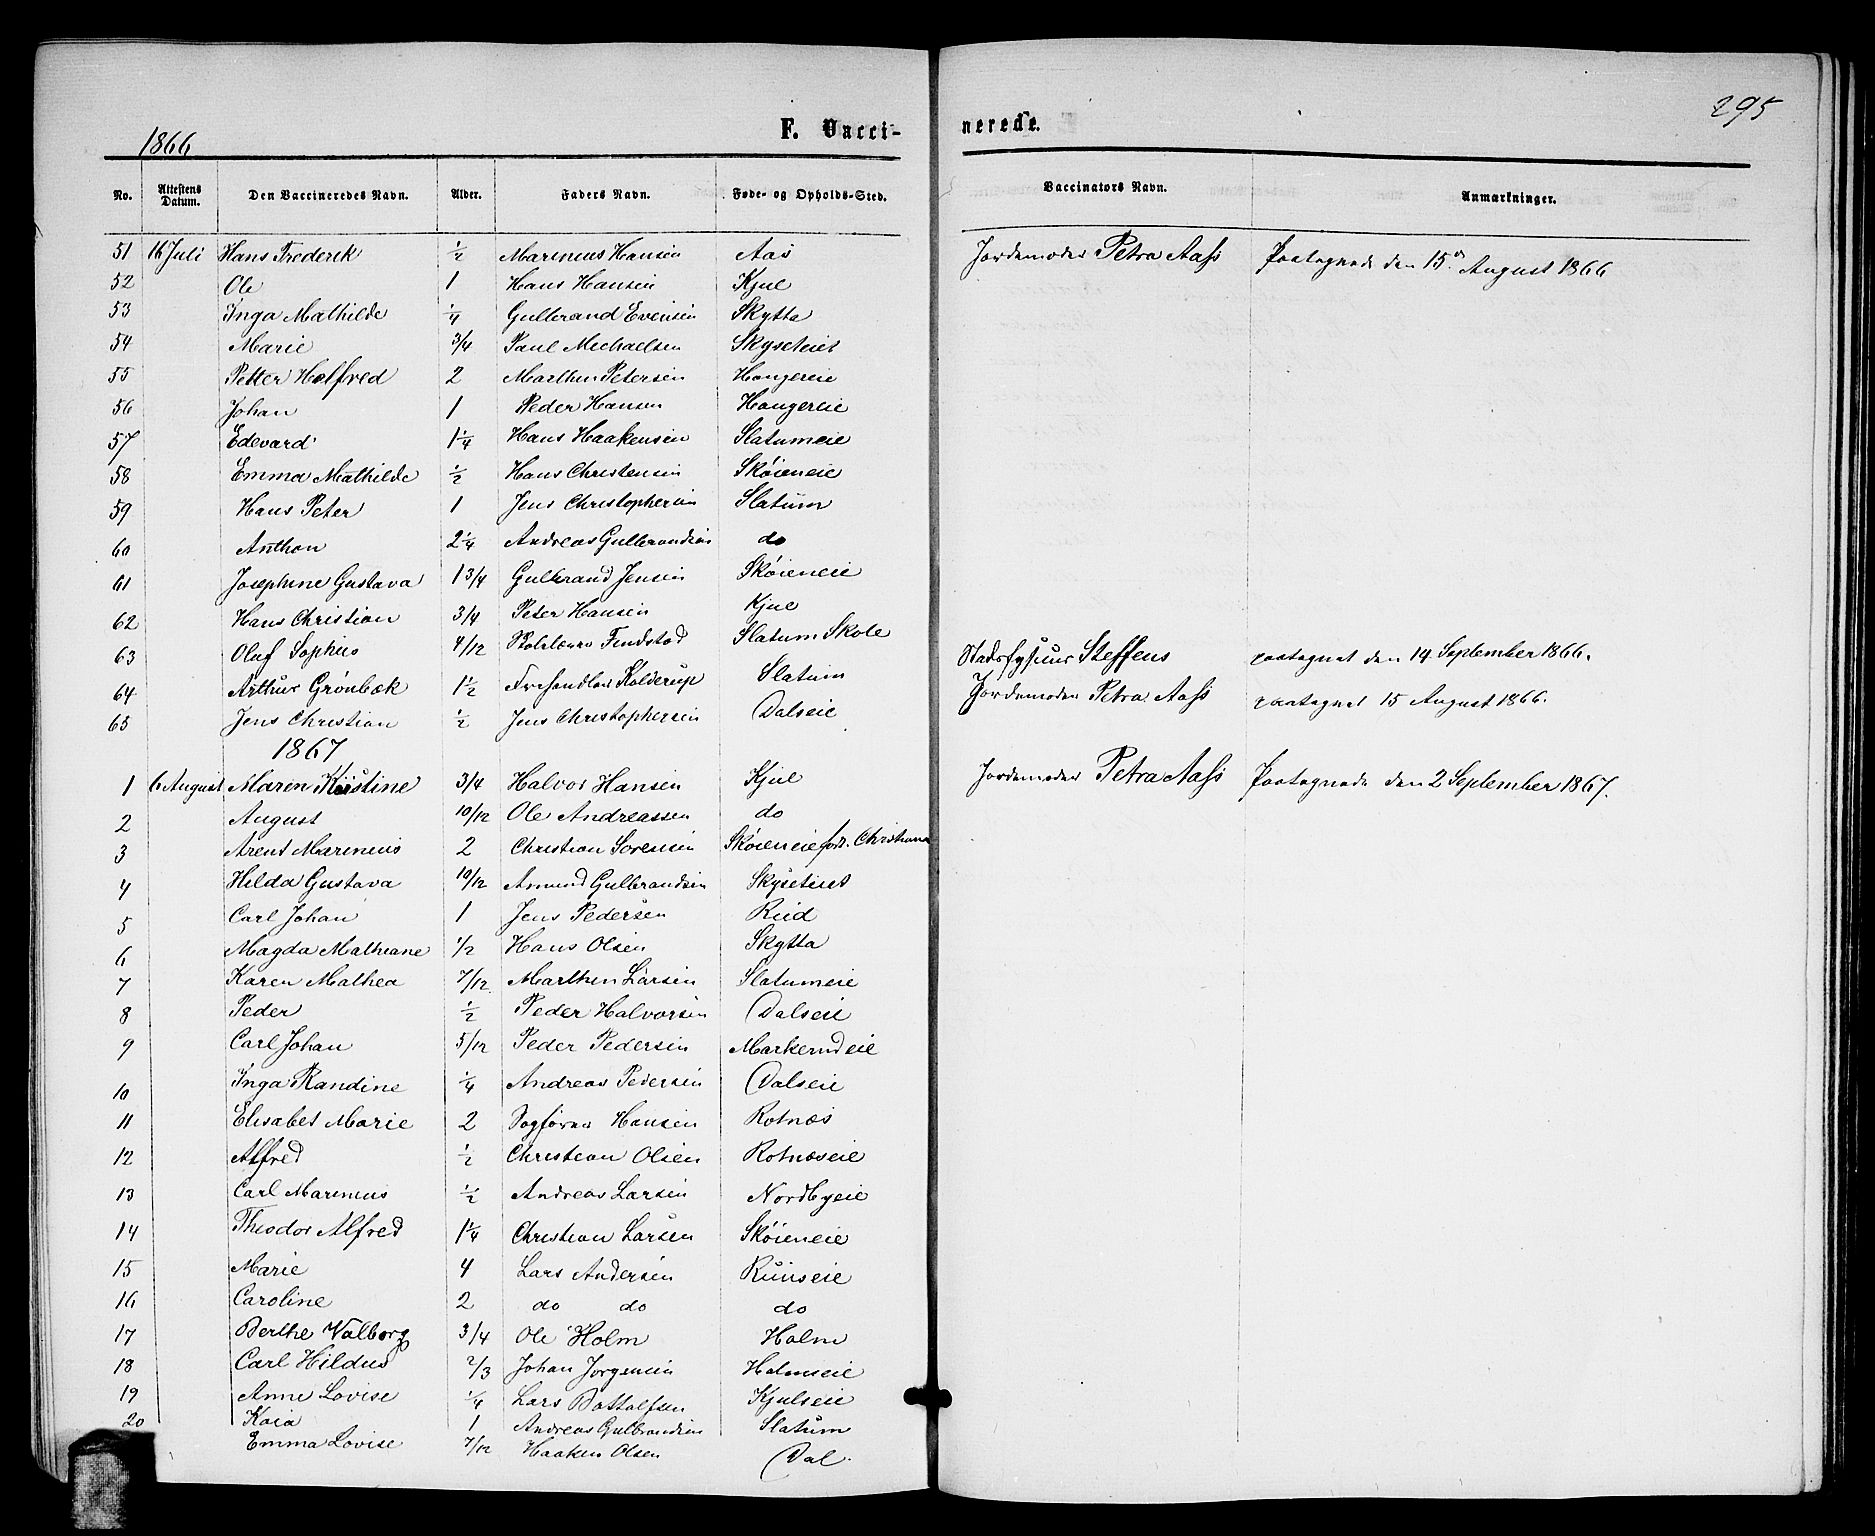 295
1866 F. Vacci- nerede.
No. Attestens Datum. Den Vaccineredes Navn. Alder. Faders Navn. Føde- og Opholds-Sted. Vaccinators Navn. Anmærkninger.
51 16 Juli Hans Frederik ½ Marinius Hansen Aas Jordemoder Petra Aass Paategnede den 15de August 1866
52 Ole 1 Hans Hansen Kjul
53 Inga Mathilde ¼ Gulbrand Evensen Skytta
54 Marie 3/4 Paul Michaelsen Skyseteiet
55 Petter Helfred 2 Marthin Petersen Haugereie
56 Johan 1 Peder Hansen Haugereie
57 Edevard 1¼ Hans Haakensen Slatumeie
58 Emma Mathilde ½ Hans Christensen Skøieneie
59 Hans Peter 1 Jens Christophersen Slatum
60 Anthon 2¼ Andreas Gulbrandsen do
61 Josephine Gustava 1 3/4 Gulbrand Jensen Skøieneie
62 Hans Christian 3/4 Peter Hansen Kjul
63 Oluf Sophus 4/12 Findstad Slatum Skole Stadsfysicus Steffens paategnet den 14 September 1866.
64 Arthur Grønbæk 1½ Frihandler Kolderup Slatum Jordemoder Petra Aass paategnet 15 August 1866.
65 Jens Christian ½ Jens Christophersen Dalseie
1867
1 6 August Maren Kristine 3/4 Halvor Hansen Kjul Jordemoder Petra Aass Paategnede den 2 September 1867.
2 August 10/12 Ole Andreassen do
3 Arent Marinius 2 Christian Sørensen Skøieneie fød. Christiania
4 Hilda Gustava 10/12 Amund Gulbrandsen Skyseteiet
5 Carl Johan 1 Jens Pedersen Ruid
6 Magda Mathiane 1/2 Hans Olsen Skytta
7 Karen Mathea 7/12 Marthin Larsen Slatumeie
8 Peder ½ Peder Halvorsen Dalseie
9 Carl Johan 5/12 Peder Pedersen Markerudeie
10 Inga Randine ¼ Andreas Pedersen Dalseie
11 Elisabet Marie 2 Sagfører Hansen Rotnæs
12 Alfred ½ Christian Olsen Rotnæseie
13 Carl Marinius ½ Andreas Larsen Nordbyeie
14 Theodor Alfred 1¼ Christian Larsen Skøieneie
15 Marie 4 Lars Andersen Ruudseie
16 Caroline 2 do do do
17 Berthe Valborg 3/4 Ole Holm Holm
18 Carl Hildus 2/3 Johan Jørgensen Holmseie
19 Anne Lovise ¼ Lars Bottolfsen Kjulseie
20 Kaia 1 Andreas Gulbrandsen Slatum
Emma Lovise 7/12 Haaken Olsen Dal.